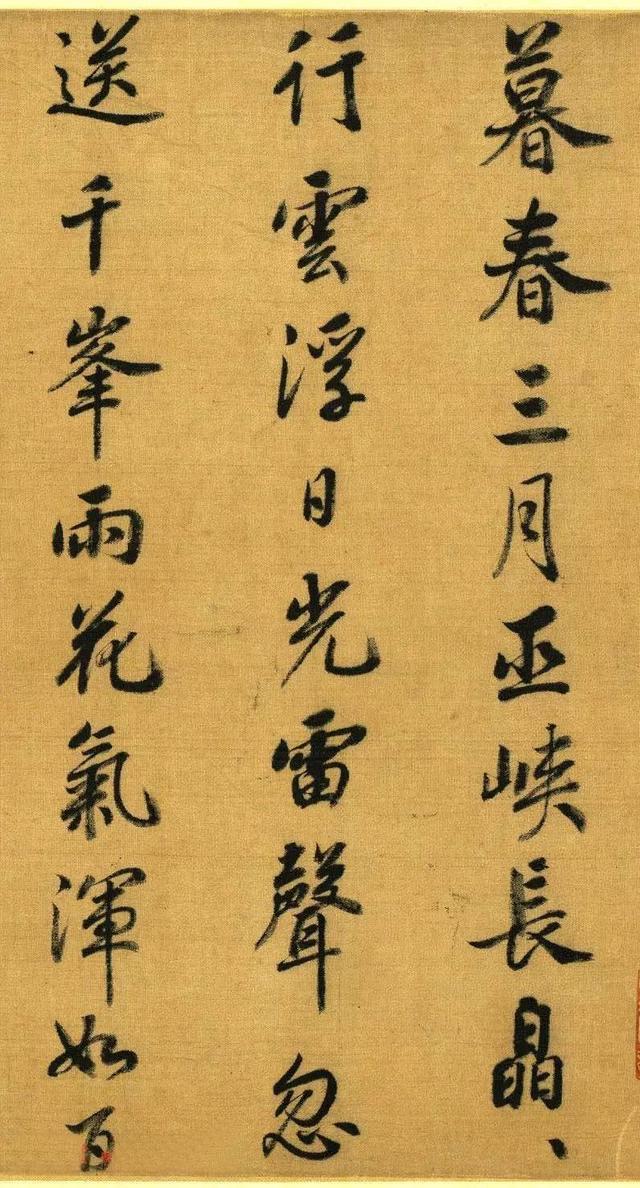 暮春三月巫峽長皛〻
行雲浮日光雷聲忽
送千峯雨花氣渾如百